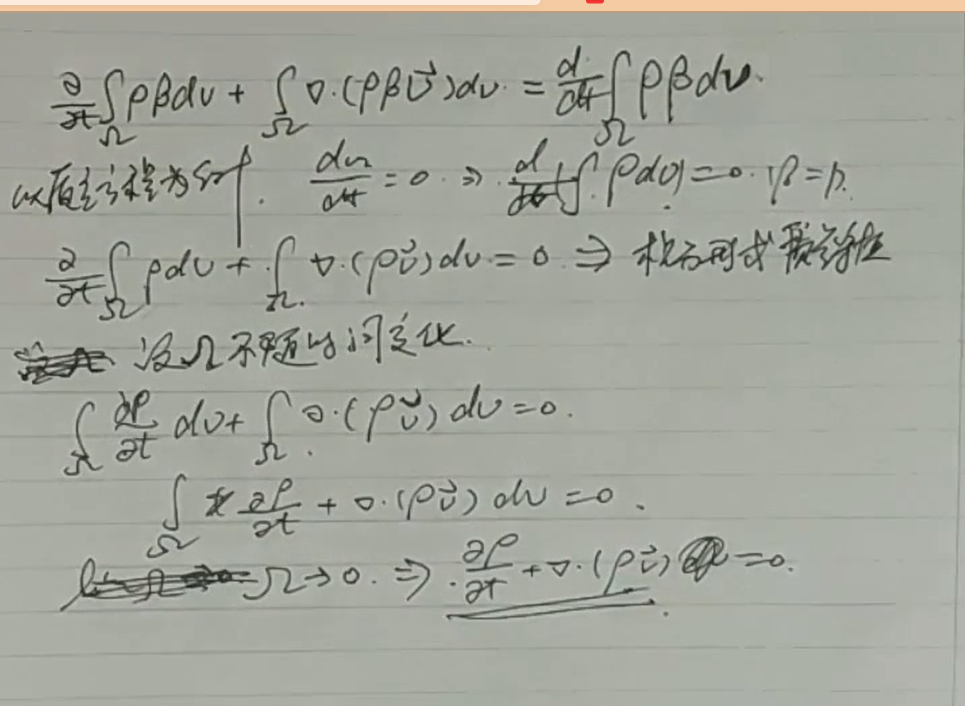 ∂/∂t ∫_Ω ρβdv + ∫_Ω ∇·(ρβv⃗)dv = d/dt ∫_Ω ρβdv.
以质量方程为例. dm/dt = 0 ⇒ d/dt ∫ ρdv = 0.
∂/∂t ∫_Ω ρdv + ∫_Ω ∇·(ρv⃗)dv = 0 ⇒
设Ω不随时间变化.
∫_Ω ∂ρ/∂t dv + ∫_Ω ∇·(ρv⃗)dv = 0.
∫_Ω ∂ρ/∂t + ∇·(ρv⃗) dv = 0.
Ω→0. ⇒ ∂ρ/∂t + ∇·(ρv⃗) = 0.